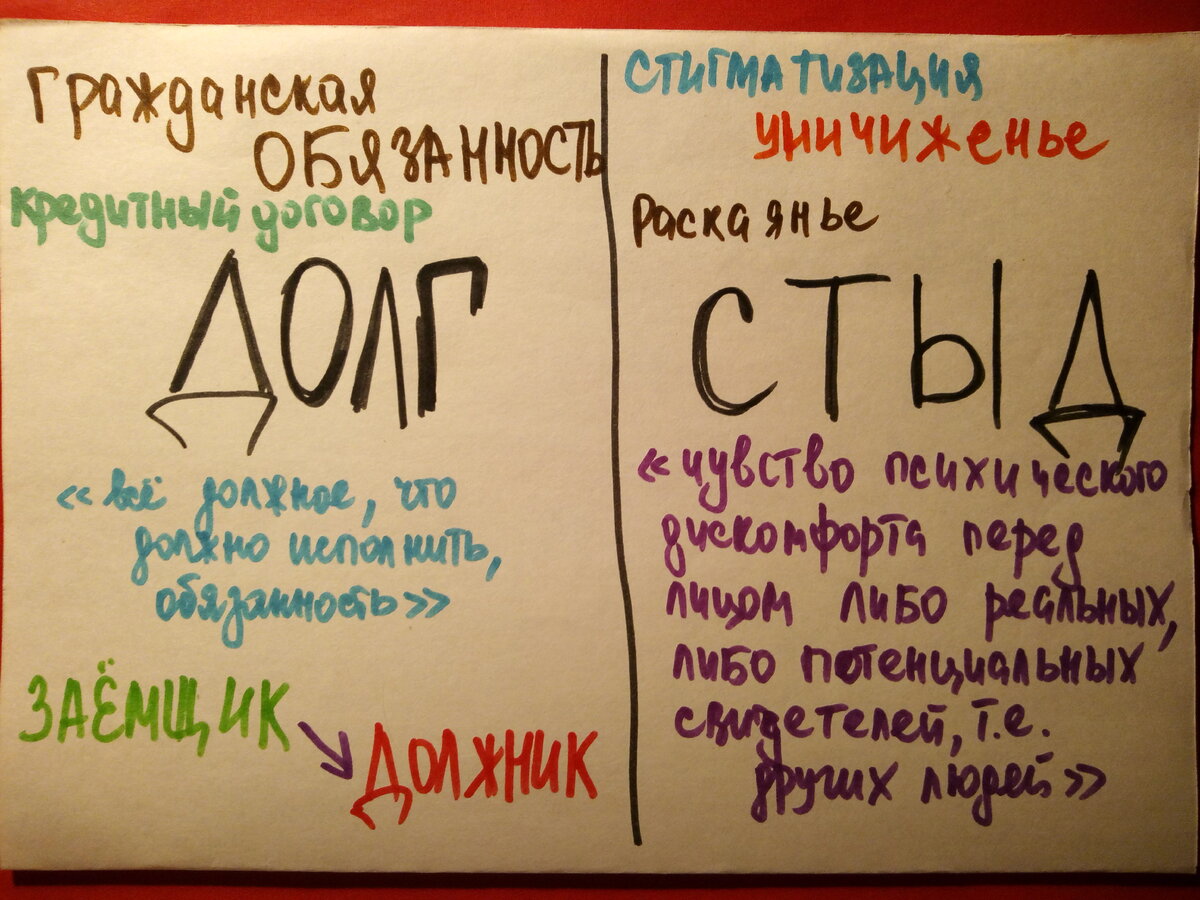 Гражданская
ОБЯЗАННОСТЬ
кредитный договор
ДОЛГ
«всё должное, что
должно исполнить,
обязанность»
ЗАЁМЩИК
ДОЛЖНИК
СТИГМАТИЗАЦИЯ
УНИЧИЖЕНЬЕ
Раскаянье
СТЫД
«чувство психического
дискомфорта перед
лицом либо реальных,
либо потенциальных
свидетелей, т.е.
других людей»